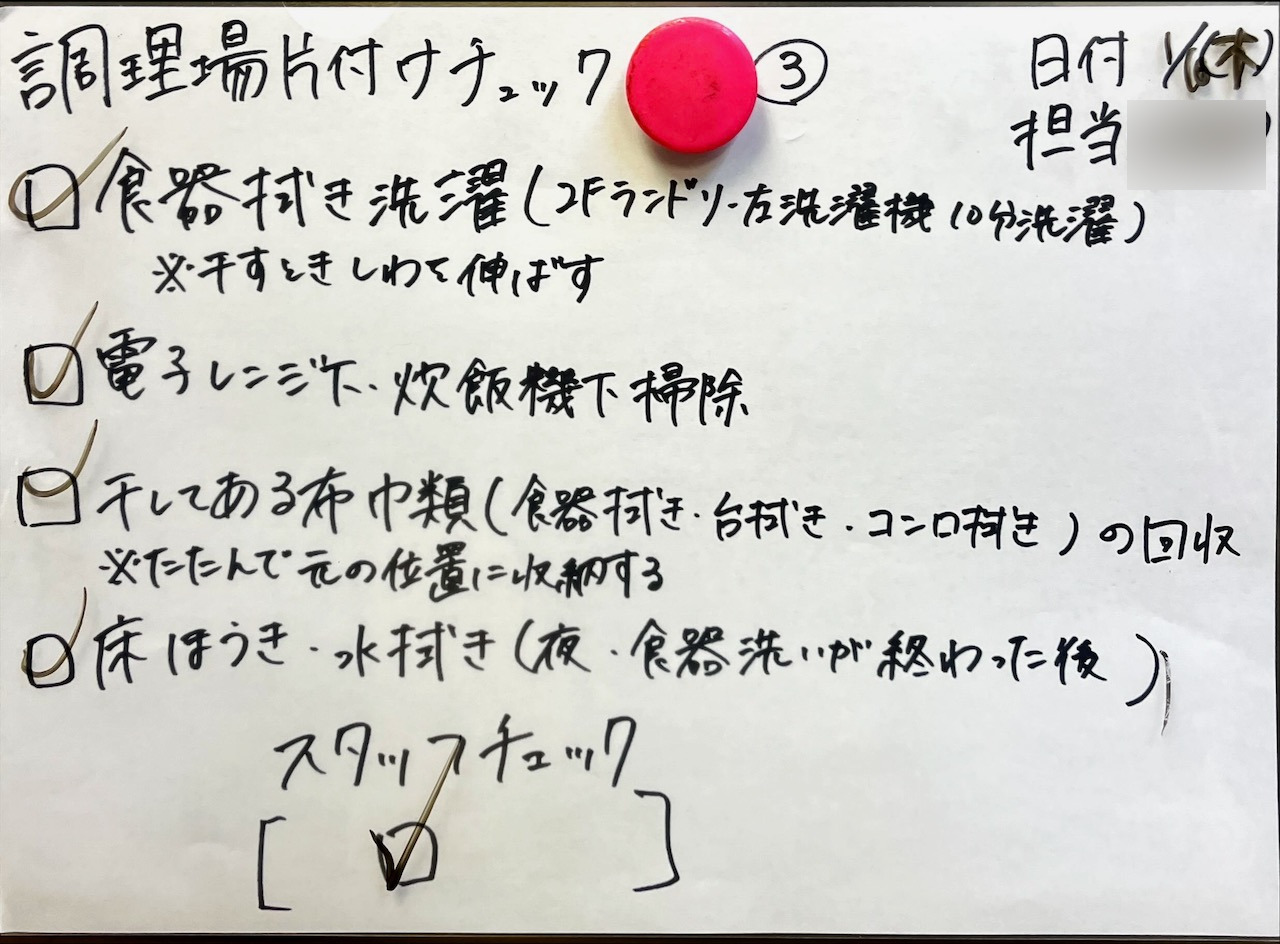 調理場片付けチェック ③
日付 1/ (木)
担当
食器拭き洗濯(2Fランドリー左洗濯機10分洗濯)
※干すときしわを伸ばす
電子レンジ下・炊飯機下掃除
干してある布巾類(食器拭き・台拭き・コンロ拭き)の回収
※たたんで元の位置に収納する
床ほうき・水拭き(夜・食器洗いが終わった後)
スタッフチェック
[ ]